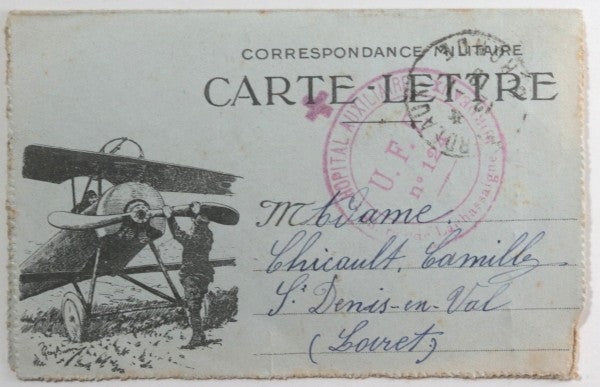 CORRESPONDANCE MILITAIRE
CARTE-LETTRE
HOPITAL AUXILIAIRE
U. F.
n° 12
Madame
Chicault, Camille
St Denis-en-Val
(Loiret)